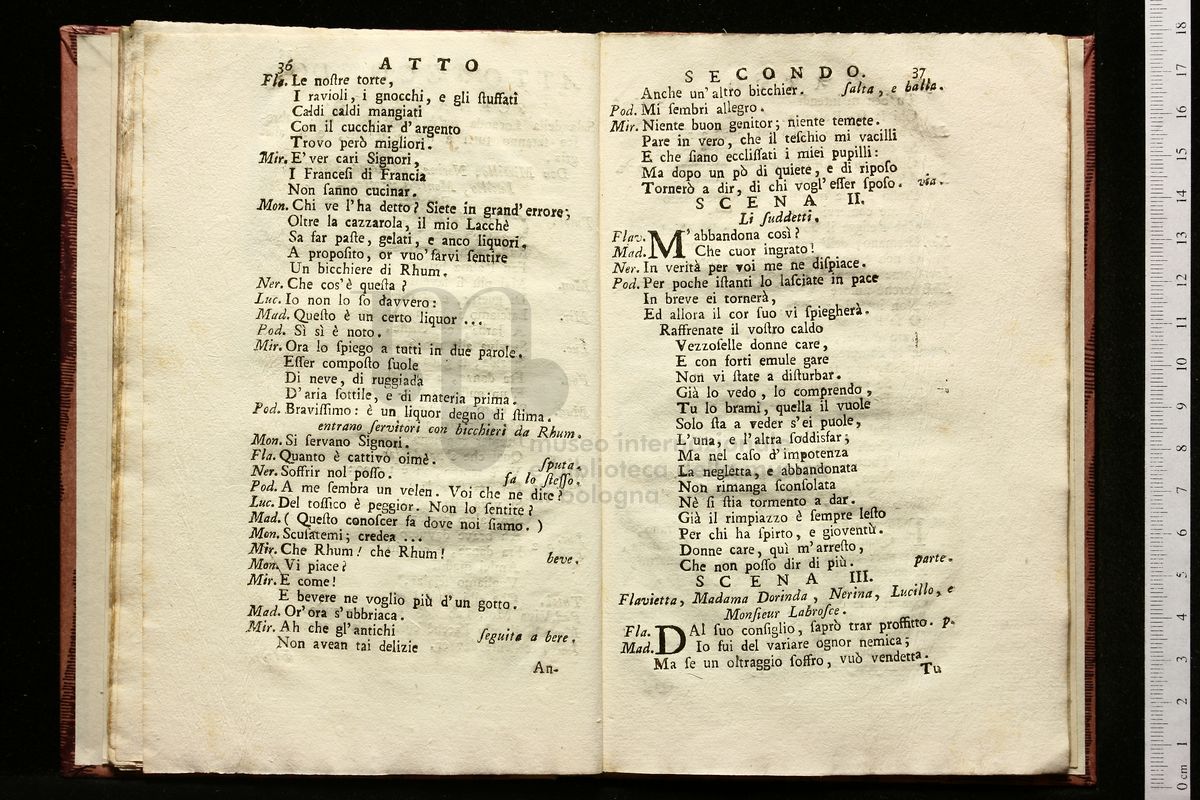 36 ATTO
Fla. Le noſtre torte,
I ravioli, i gnocchi, e gli ſtuffati
Caldi caldi mangiati
Con il cucchiar d'argento
Trovo però migliori.
Mir. E' ver cari Signori,
I Franceſi di Francia
Non ſanno cucinar.
Mon. Chi ve l'ha detto? Siete in grand' errore;
Oltre la cazzarola, il mio Lacchè
Sa far paſte, gelati, e anco liquori.
A propoſito, or vuo' farvi ſentire
Un bicchiere di Rhum.
Ner. Che cos'è queſta?
Luc. Io non lo ſo davvero:
Mad. Queſto è un certo liquor ...
Pod. Sì sì è noto.
Mir. Ora lo ſpiego a tutti in due parole.
Eſſer compoſto ſuole
Di neve, di ruggiada
D'aria ſottile, e di materia prima.
Pod. Braviſſimo: è un liquor degno di ſtima.
entrano ſervitori con bicchieri da Rhum.
Mon. Si ſervano Signori.
Fla. Quanto è cattivo oimè. ſputa.
Ner. Soffrir nol poſſo. fa lo ſteſſo.
Pod. A me ſembra un velen. Voi che ne dite?
Luc. Del toſſico è peggior. Non lo ſentite?
Mad. ( Queſto conoſcer fa dove noi ſiamo. )
Mon. Scuſatemi; credea ...
Mir. Che Rhum! che Rhum! beve.
Mon. Vi piace?
Mir. E come!
E bevere ne voglio più d'un gotto.
Mad. Or'ora s'ubbriaca.
Mir. Ah che gl'antichi ſeguita a bere.
Non avean tai delizie
An-
SECONDO. 37
Anche un'altro bicchier. ſalta, e balla.
Pod. Mi ſembri allegro.
Mir. Niente buon genitor; niente temete.
Pare in vero, che il teſchio mi vacilli
E che ſiano eccliſſati i miei pupilli:
Ma dopo un pò di quiete, e di ripoſo
Tornerò a dir, di chi vogl'eſſer ſpoſo. via.
SCENA II.
Li ſuddetti.
Flav. M'abbandona così?
Mad. Che cuor ingrato!
Ner. In verità per voi me ne diſpiace.
Pod. Per poche iſtanti lo laſciate in pace
In breve ei tornerà,
Ed allora il cor ſuo vi ſpiegherà.
Raffrenate il voſtro caldo
Vezzoſelle donne care,
E con forti emule gare
Non vi ſtate a diſturbar.
Già lo vedo, lo comprendo,
Tu lo brami, quella il vuole
Solo ſta a veder s'ei puole,
L'una, e l'altra ſoddisfar;
Ma nel caſo d'impotenza
La negletta, e abbandonata
Non rimanga ſconſolata
Nè ſi ſtia tormento a dar.
Già il rimpiazzo è ſempre leſto
Per chi ha ſpirto, e gioventù.
Donne care, quì m'arreſto,
Che non poſſo dir di più. parte.
SCENA III.
Flavietta, Madama Dorinda, Nerina, Lucillo, e
Monſieur Labroſce.
Fla. DAl ſuo conſiglio, ſaprò trar proffitto. p.
Mad. Io fui del variare ognor nemica;
Ma ſe un oltraggio ſoffro, vuò vendetta.
Tu
museo internazionale
e biblioteca della musica
bologna
0 cm 1 2 3 4 5 6 7 8 9 10 11 12 13 14 15 16 17 18